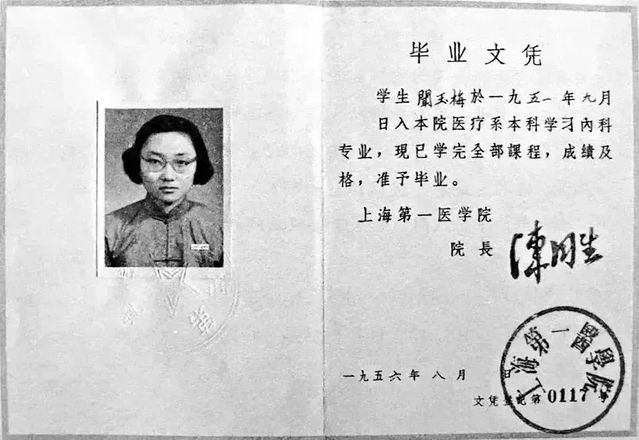 毕业文凭
学生 聞玉梅於一九五一年九月
日入本院医疗系本科学习內科
专业，現已学完全部課程，成績及
格，准予毕业。
上海第一医学院
院長 陳同生
一九五六年八月 日
文凭登記第0117号
上海第一醫學院